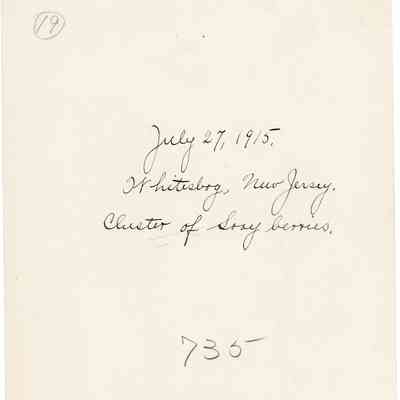 19
July 27, 1915.
Whitesbog, New Jersey.
Cluster of Sooy berries.
735